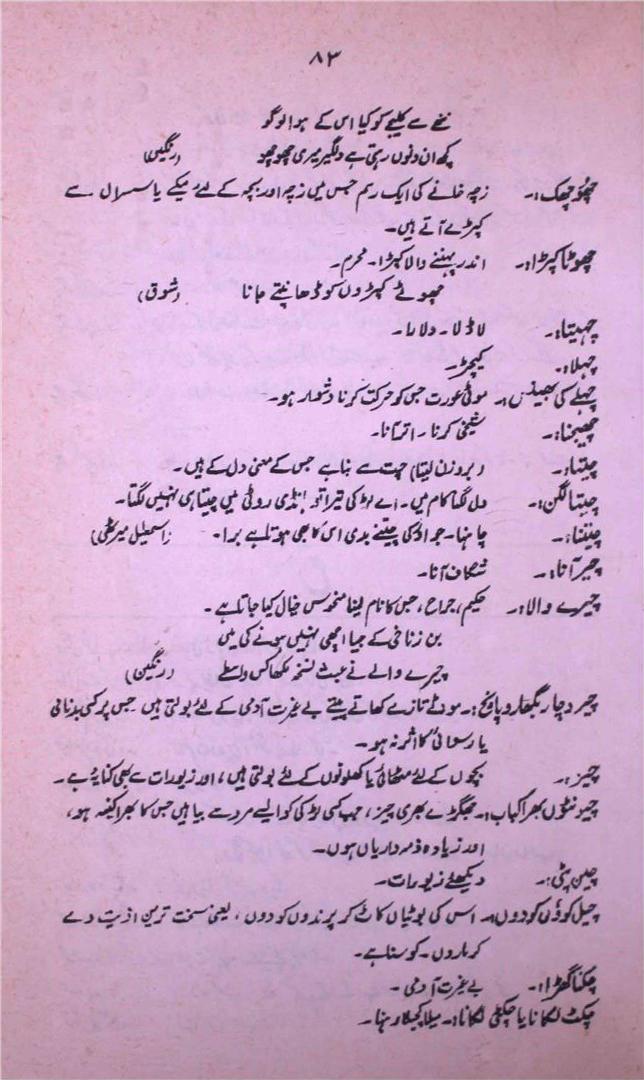 ۸۳
ننھے سے کلیجے کو کیا اس کے ہوا لوگو
کچھ ان دنوں رہتی ہے دلگیر میری چھوچھو (رنگین)
چھوچھک:۔ زچہ خانے کی ایک رسم جس میں زچہ اور بچہ کے لئے میکے یا سسرال سے
کپڑے آتے ہیں۔
چھوٹا کپڑا:۔ اندر پہننے والا کپڑا۔ محرم۔
چھوٹے کپڑوں کو ڈھانپتے جانا (شوق)
چہیتا:۔ لاڈلا۔ دلارا۔
چہلا:۔ کیچڑ۔
چہلے کی بھینس:۔ موٹی عورت جس کو حرکت کرنا دشوار ہو۔
شیخی کرنا۔ اترانا۔
چیتا:۔ (بروزن لیتا) چت سے بنا ہے جس کے معنی دل کے ہیں۔
چیتا لگنا:۔ دل لگنا کام میں۔ اے لڑکی تیرا تو ہنڈی روٹی میں چیتا ہی نہیں لگتا۔
چیتنا:۔ چاہنا۔ جو اوروں کی چیتے بدی اس کا بھی ہوتا ہے برا۔ (اسمٰعیل میرٹھی)
چیر آنا:۔ شگاف آنا۔
چیرے والا:۔ حکیم، جراح، جس کا نام لینا منحوس خیال کیا جاتا ہے۔
بن زناخی کے جیا اچھی نہیں ہونے کی میں
چیرے والے نے عبث نسخہ لکھا کس واسطے (رنگین)
چیر چار بگھارو پانچ:۔ موٹے تازے کھاتے پیتے بے غیرت آدمی کے لئے بولتی ہیں جس پر کسی بدنامی
یا رسوائی کا اثر نہ ہو۔
چیز:۔ بچوں کے لئے مٹھائی یا کھلونوں کے لئے بولتی ہیں، اور زیورات سے بھی کنایہ ہے۔
چیونٹوں بھرا کباب:۔ جھگڑے بھری چیز، جب کسی لڑکی کو ایسے مرد سے بیاہیں جس کا بھرا کنبہ ہو،
اور زیادہ ذمہ داریاں ہوں۔
چین پٹی:۔ دیکھئے زیورات۔
چیل کوؤں کو دوں:۔ اس کی بوٹیاں کاٹ کر پرندوں کو دوں، یعنی سخت ترین اذیت دے
کر ماروں۔ کوسنا ہے۔
چکنا گھڑا:۔ بے غیرت آدمی۔
چکٹ لگانا یا چکٹی لگانا:۔ میلا کچیلا رہنا۔